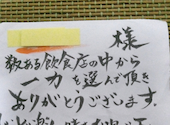 様
数ある飲食店の中から
一力を選んで頂き
ありがとうございます。